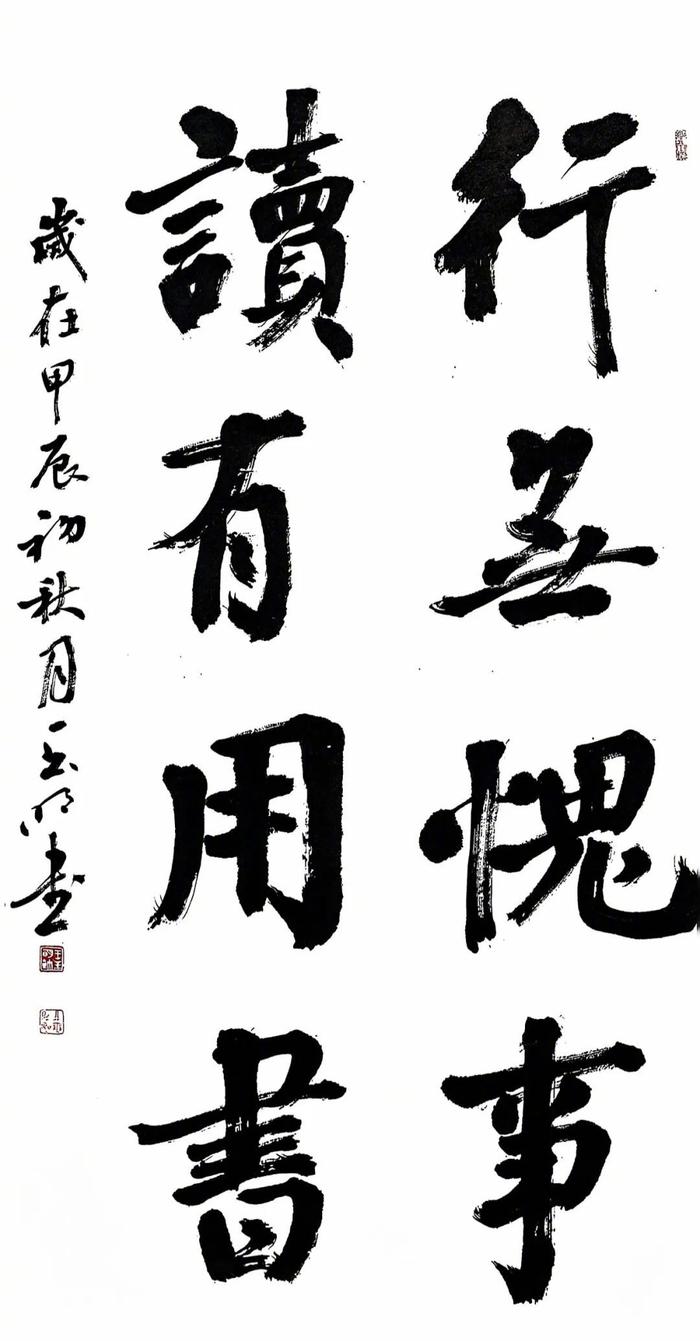 行無愧事
讀有用書
歲在甲辰初秋月玉明書